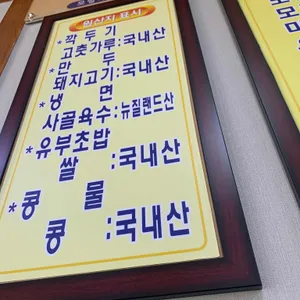 원산지 표시
*깍두기
고춧가루:국내산
*만두
돼지고기:국내산
*냉면
사골육수:뉴질랜드산
*유부초밥
쌀:국내산
*콩물
콩:국내산